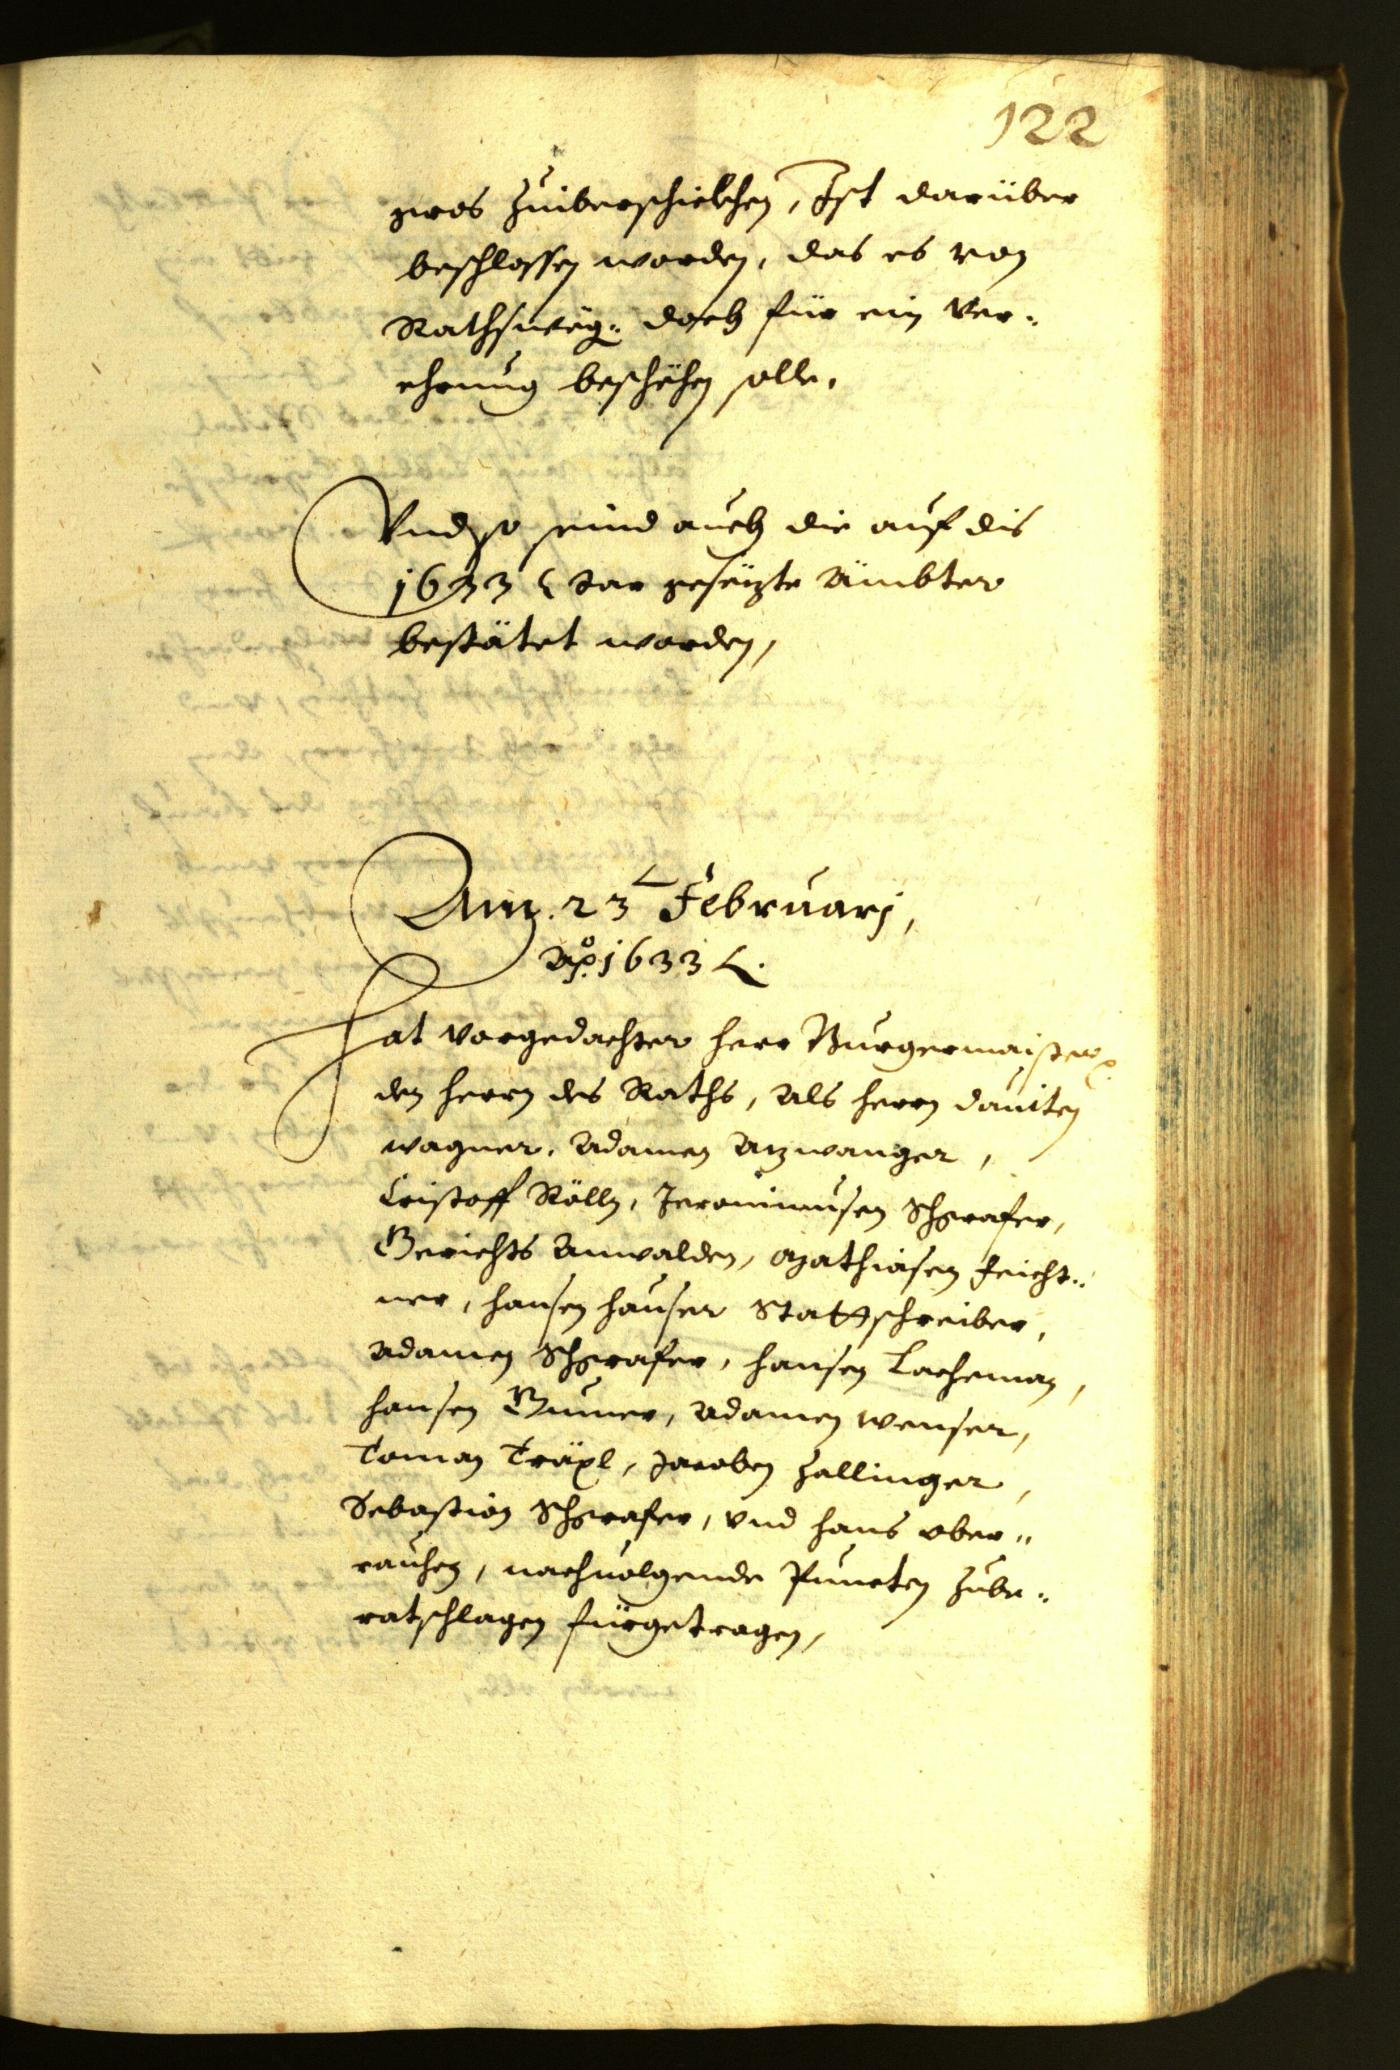 122
gros zuüberschickhen, Ist darüber
beschlossen worden, das es von
Rathsweg: doch für ein Ver-
ehrung beschehen solle.
Vnd so seind auch die auf dis
1633 Jar gesezte Ämbter
bestätet worden,
Am. 23 Februarj,
Aº 1633.
Hat vorgedachter herr Burgermaister
den herrn des Raths, Als herrn dauiten
wagner, Adamen Azwanger,
Cristoff Röllz, Jeronimusen Schgrafer,
Gerichts Anwalden, Mathiasen Feicht-
ner, hansen hauser Stattschreiber,
Adamen Schgrafer, hansen Lacheman,
hansen Gumer, Adamen wenser,
Toman Träxl, Jacoben Zallinger,
Sebastian Schgrafer, vnd hans ober-
rauhen, nachuolgende Puncten zube-
ratschlagen fürgetragen,